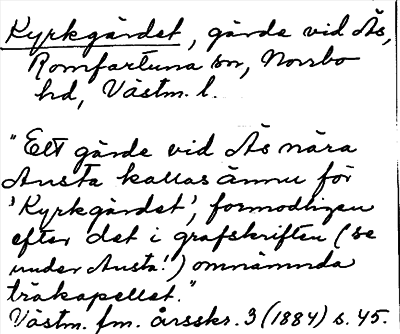 Kyrkgärdet, gärde vid Ås,
Romfartuna sn, Norrbo
hd, Västm. l.
"Ett gärde vid Ås nära
Austa kallas ännu för
'Kyrkgärdet', formodligen
efter det i grafskriften (se
under Austa!) omnämnda
träkapellet."
Västm. fm. årsskr. 3 (1884) s. 45.